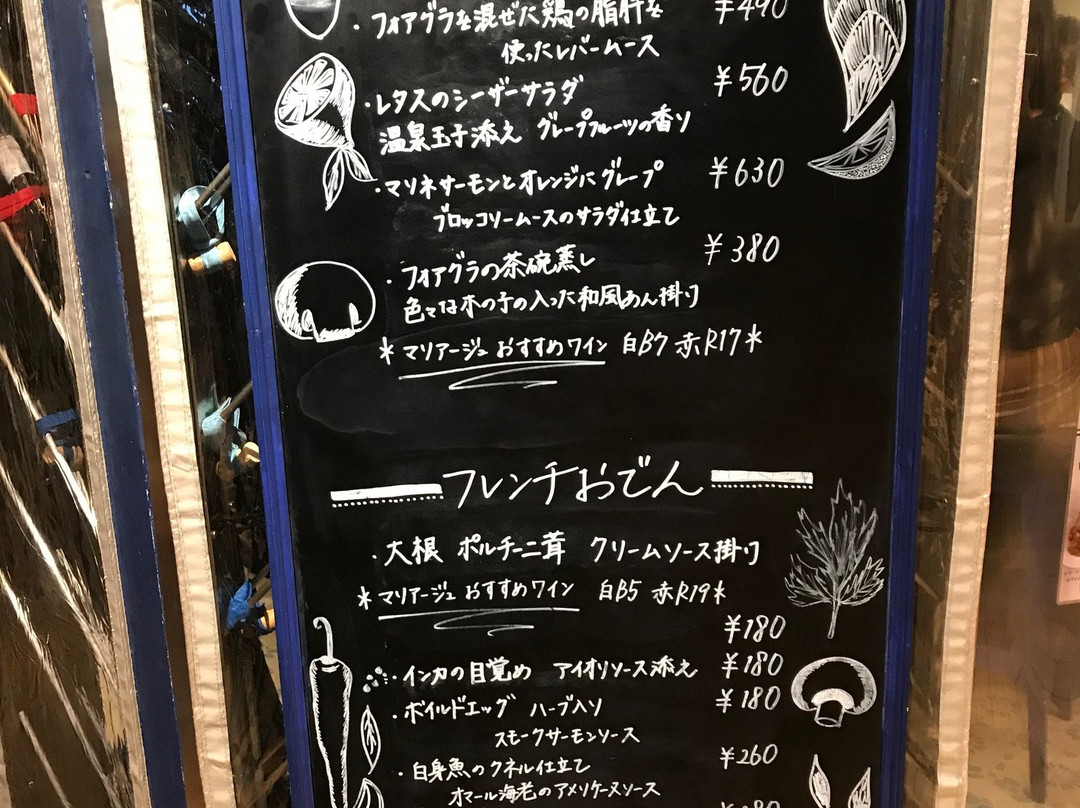 ・フォアグラを混ぜた鶏の脂肝を ¥490
使ったレバームース
・レタスのシーザーサラダ ¥560
温泉玉子添え グレープフルーツの香り
・マリネサーモンとオレンジにグレープ ¥630
ブロッコリームースのサラダ仕立て
・フォアグラの茶碗蒸し ¥380
色々な木の子の入った和風あん掛け
*マリアージュ おすすめワイン 白B7 赤R17*
フレンチおでん
・大根 ポルチーニ茸 クリームソース掛け
*マリアージュ おすすめワイン 白B5 赤R19*
¥180
・インカの目覚め アイオリソース添え ¥180
・ボイルドエッグ ハーブ入り ¥180
スモークサーモンソース
・白身魚のクネル仕立て ¥260
オマール海老のアメリケーヌソース